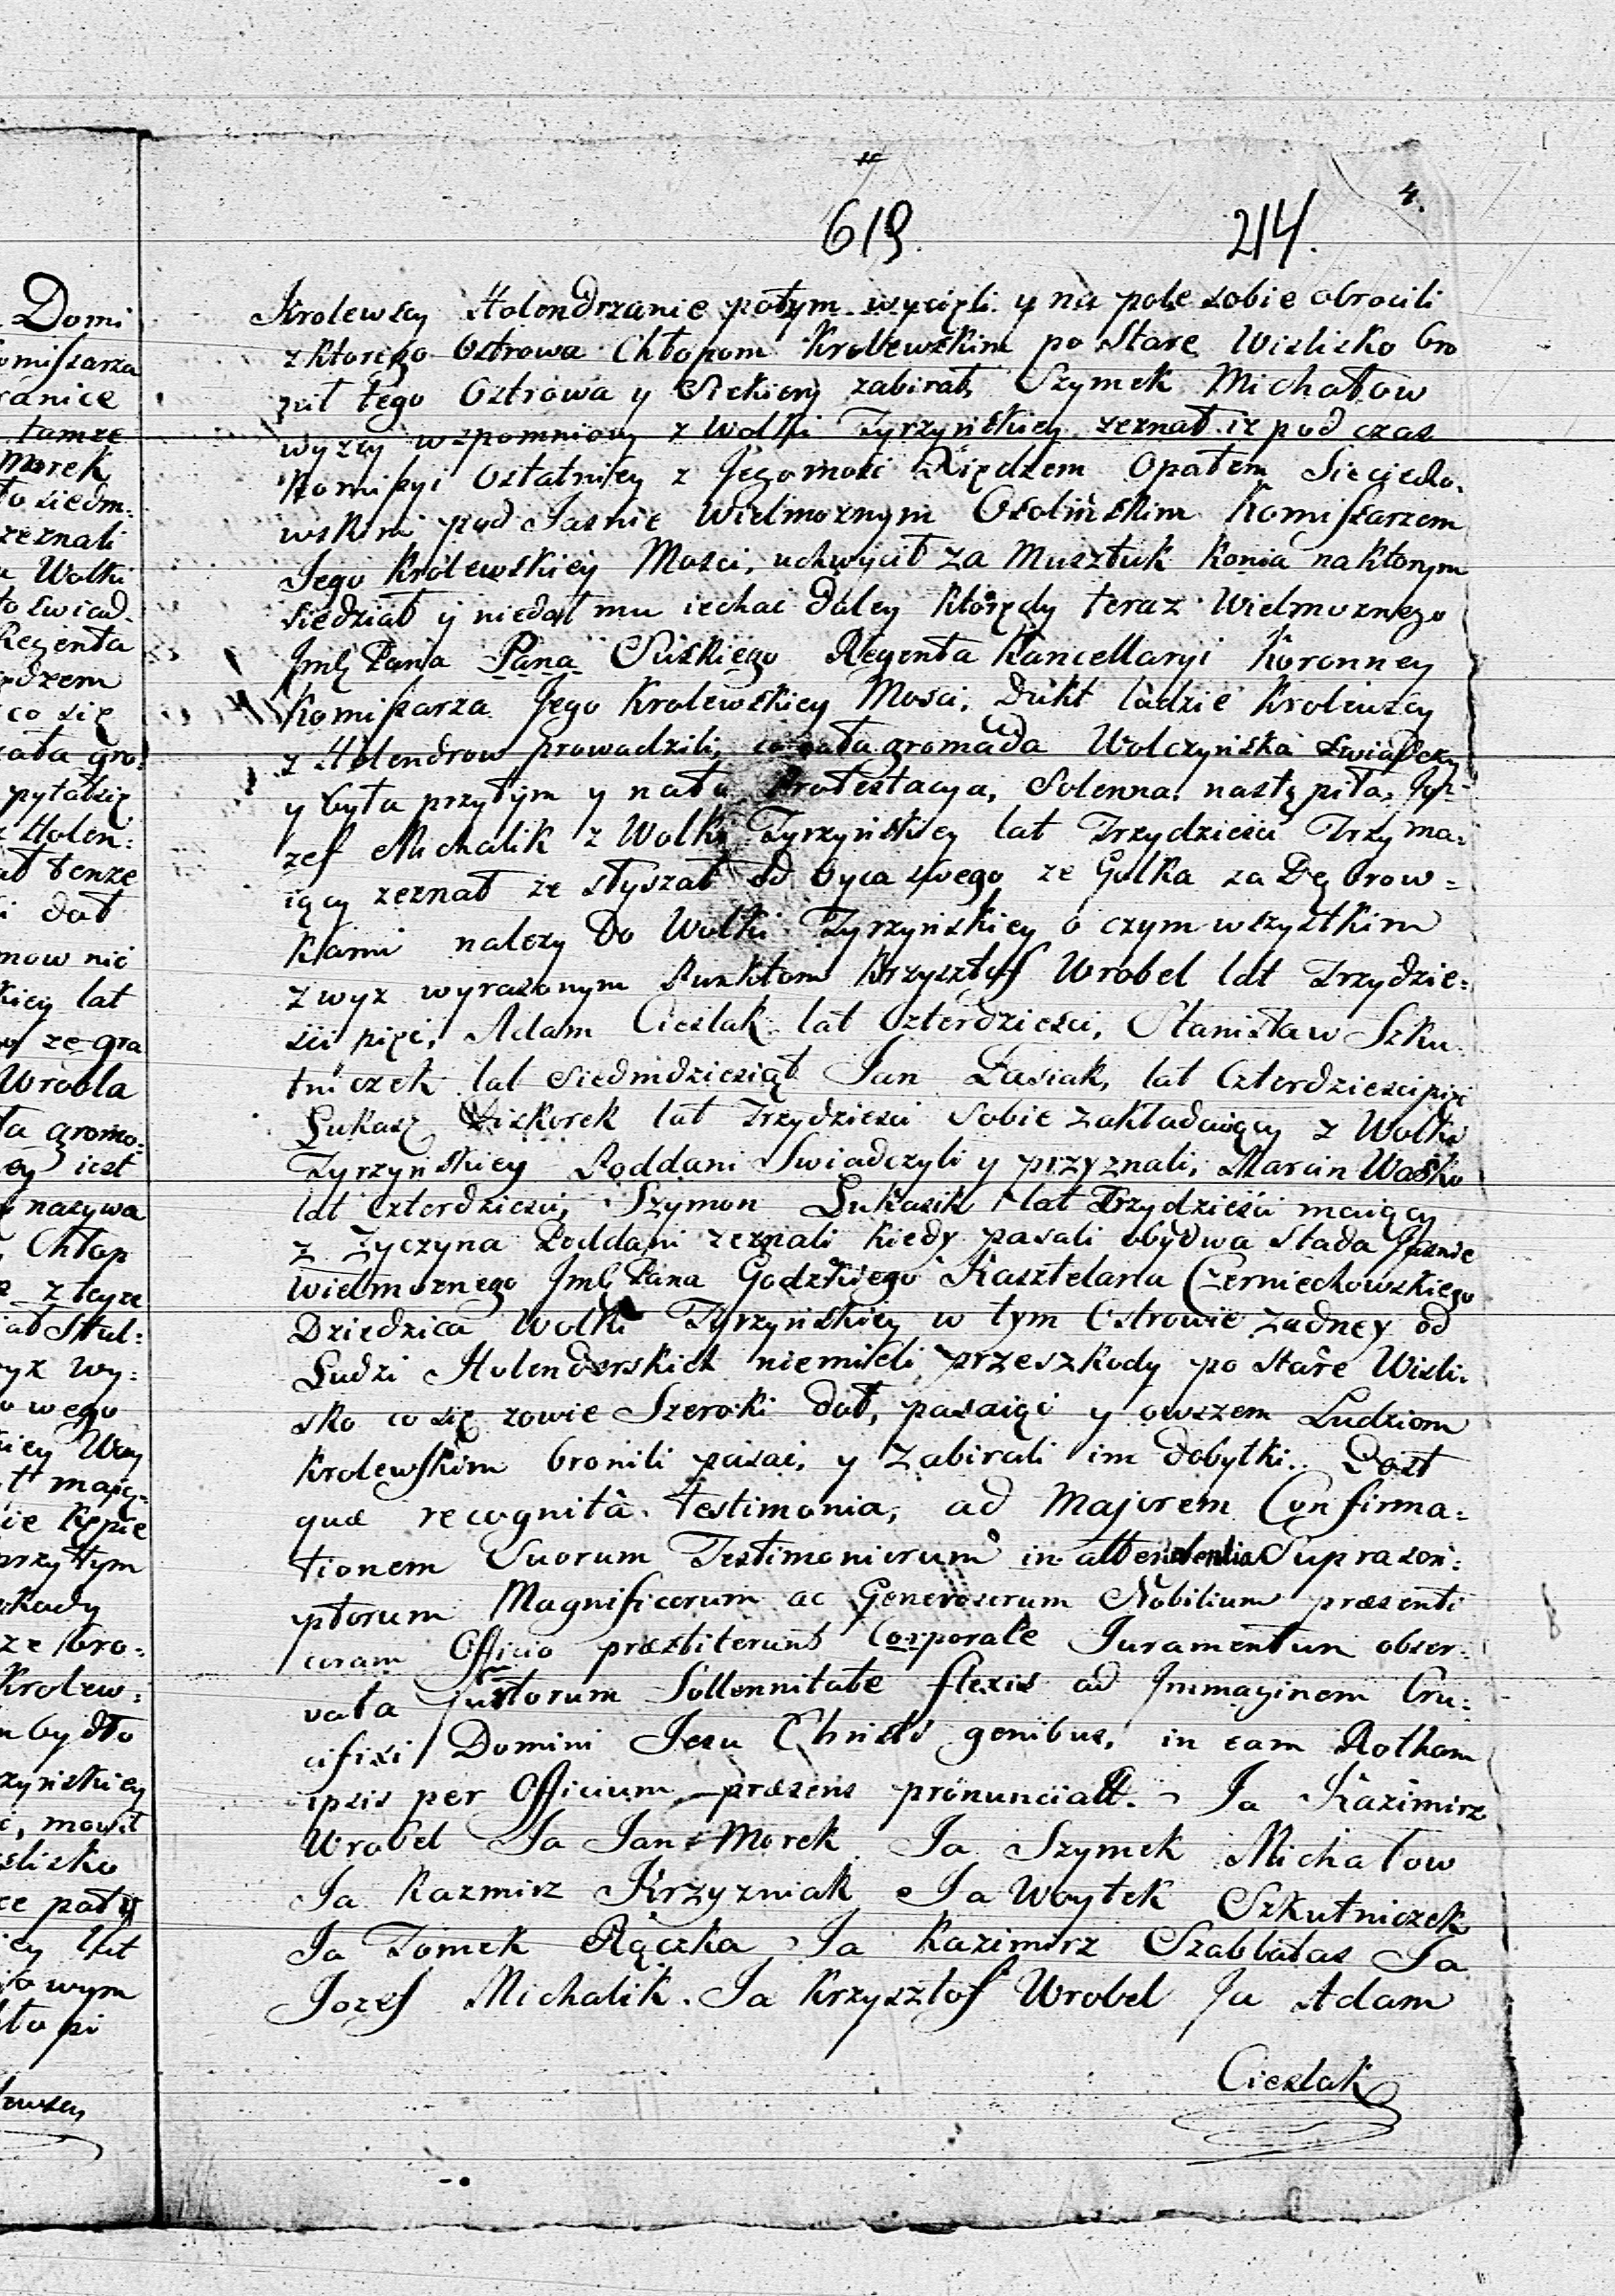 619.
214.
4.
Krolewscy Holendrzanie potym wycięli y na pole sobie obrocili
z ktorego Ostrowa Chłopom Krolewskim po Stare Wislisko bro
nił tego Ostrowa y Siekiery zabirał, Szymek Michałow
wyzey wspomniony z Wolki Tyrzyńskiey zeznał iz pod czas
Komissyi Ostatniey z Jegomosc Xiędzem Opatem Sieciecho-
wskim pod Jasnie Wielmoznym Osolińskim Komissarzem
Jego Królewskiey Mosci, uchwycił za Musztuk Konia na ktorym
siedział y niedał mu iechac daley ktorędy teraz Wielmoznego
Jmć Pana Pana Suskiego Regenta Kancellaryi Koronney
Komissarza Jego Krolewskiey Mosci, Dukt ludzie Krolewscy
z Holendrow prowadzili, co cała gromada Wolczyńska swiadczy
y była przytym y na to Protestacya, Solenna, nastąpiła, Jo-
zef Michalik z Wolki Tyrzyńskiey lat Trzydziesci Trzy ma-
iący zeznał ze słyszał od Oyca swego ze Gulka za Dębrow=
kami nalezy do Wolki Tyrzyńskiey o czym wszystkim
z wyz wyrazonym Punktom Krzysztof Wrobel lat Trzydzie=
sci pięć, Adam Cieslak lat Czterdziesci, Stanisław Szku
tniczek lat Siedmdziesiąt Jan Pasiak, lat Czterdziesci pięć
Łukasz Piskorek lat Trzydziesci sobie zakładaiący z Wolki
Tyrzyńskiey Poddani Swiadczyli y przyznali, Marcin Wasko
lat Czterdziesci, Szymon Łukasik lat Trzydziesci maiący
z Zyczyna Poddani zeznali kiedy pasali obydwa stada Jasnie
Wielmoznego Jmć Pana Godzkiego Kasztelana Czerniechowskiego
Dziedzica Wolki Tyrzyńskiey w tym Ostrowie zadney od
Ludzi Holenderskich niemieli przeszkody po stare Wisli-
sko co się zowie Szeroki doł, pasaiąc y owszem Ludziom
Krolewskim bronili pasac, y zabirali im dobytki. Post
quæ recognita testimonia, ad Majorem Confirma=
tionem Suorum Testimoniorum in attendentia Suprascri=
ptorum Magnificorum ac Generosorum Nobilium præsenti
coram Officio præstiterunt Corporale Juramentum obser-
vata justorum Sollennitate flexis ad Jmmaginem Cru=
cifixi Domini Jesu Christi genibus, in eam Rotham
ipsis per Officium præsens pronunciatt. Ja Kazimirz
Wrobel Ja Jan Morek Ja Szymek Michałow
Ja Kazmirz Krzyzniak Ja Woytek Szkutniczek
Ja Tomek Rączka, Ja Kazimirz Szabłatas Ja
Jozef Michalik. Ja Krzysztof Wrobel Ja Adam
Cieslak